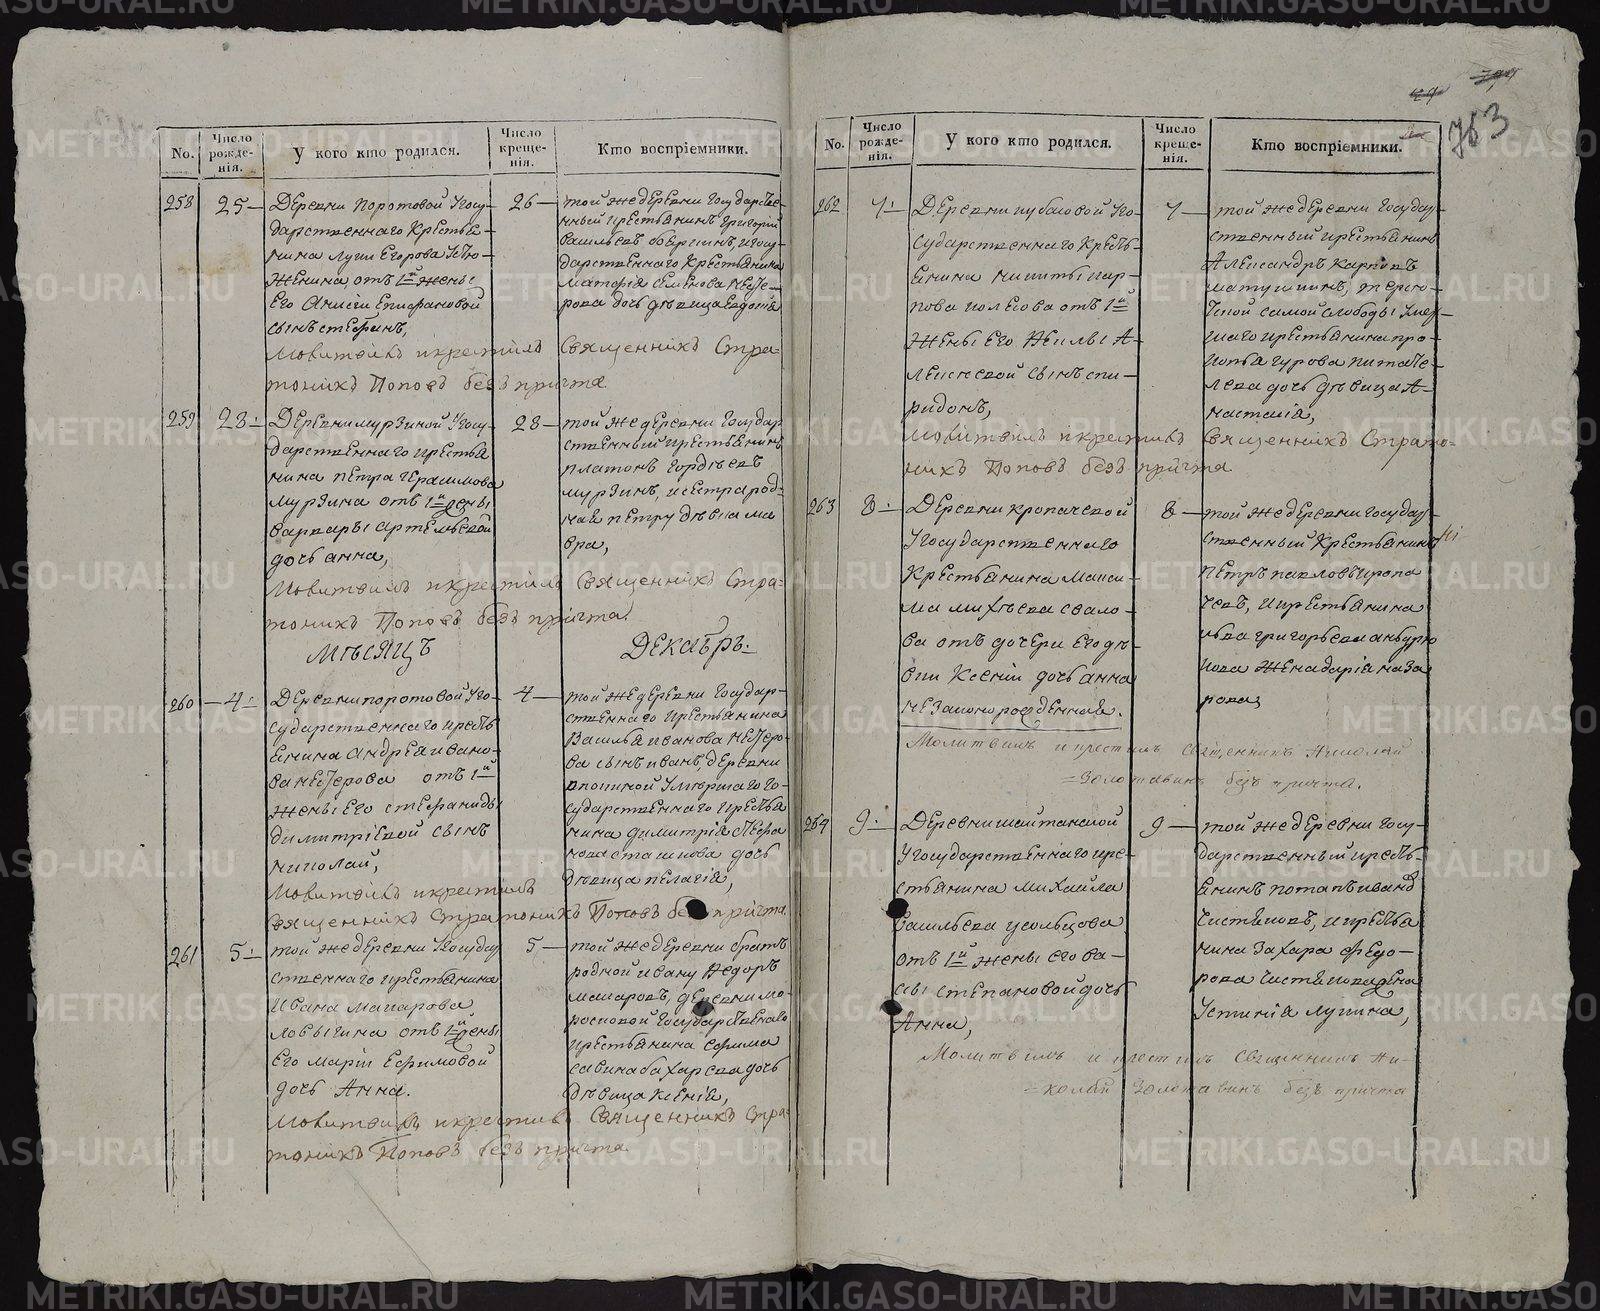 763
No.
Число рожде-нія.
У кого кто родился.
Число креще-нія.
Кто воспріемники.
258
25
Деревни Поротовой Угосу-
дарственнаго Крестья-
нина Луки Егорова
женина, отъ 1й жены
его Анисіи Епифановой
сынъ стефанъ,
26
той же деревни государстве-
нный крестьянинъ григорій
васильевъ
дарственнаго Крестьянина
дочь дѣвица Евдокія
Молитвилъ икрестилъ Священникъ Стра-
тоникъ Поповъ безъ причта
259
28
Деревни мурзиной Угосу-
дарственнаго крестья
нина петра герасимова
мурзина отъ 1й жены
варвары артемьевой
дочь анна,
28
той же деревни государ
ственный крестьянинъ
платонъ гордѣевъ
мурзинъ, исестра род-
ная петру дѣвка ма
вра,
Молитвилъ икрестилъ Священникъ Стра-
тоникъ Поповъ безъ причта.
Мѣсяцъ Декабрь.
260
4
Деревни поротовой Уго-
сударственнаго кресть
янина андрея ивано-
ва нехорова отъ 1й
жены его стефаниды
димитріевой сынъ
николай,
4
той же деревни государ-
ственнаго крестьянина
василья иванова
ва сынъ иванъ, деревни
умершаго го-
сударственнаго крестья
нина димитрія
дочь
дѣвица пелагія,
Молитвилъ икрестилъ
Священникъ Стратоникъ Поповъ безъ причта
261
5
той же деревни Угосудар
ственнаго крестьянина
ивана макарова
ловыгина отъ 1й жены
его маріи ефимовой
дочь Анна.
5
той же деревни братъ
родной ивану Ѳедоръ
макаровъ, деревни мо-
росковой государственнаго
крестьянина ефима
савина бахарева дочь
дѣвица ксенія,
Молитвилъ икрестилъ Священникъ Стра-
тоникъ Поповъ безъ причта.
No.
Число рожде-нія.
У кого кто родился.
Число креще-нія.
Кто воспріемники.
262
7
Деревни кубасовой Уго-
сударственнаго кресть-
янина никиты кар-
пова колесова отъ 1й
жены его Ѳеклы А-
лексеевой сынъ спи-
ридонъ,
7
той же деревни государ-
ственный крестьянинъ
Александръ Карповъ
самой слободы умер-
шаго крестьянина про-
копья гурова
лева дочь дѣвица А-
настасія,
Молитвилъ икрестилъ Священникъ Страто-
никъ Поповъ безъ причта
263
8
Деревни кропачевой
Угосударственнаго
Крестьянина Макси-
ма михѣева свало-
ва отъ дочери его дѣ-
вки Ксеніи дочь анна
незаконорожденная.
8
той же деревни государ-
ственный Крестьянинъ
петръ павловъ кропа
чевъ, икрестьянина
льва григорьева
кова жена дарія наза
рова,
Молитвилъ и крестилъ священникъ Николай
=Золотавинъ безъ причта.
264
9
Деревни шайтанской
Угосударственнаго кре-
стьянина михайла
васильева усольцова
отъ 1й жены его ва-
сы степановой дочь
Анна,
9
той же деревни госу-
дарственный кресть-
янинъ потапъ ивановъ
чистяковъ, икрестья
нина захара ѳедо-
рова чистякова жена
Устинія лукина,
Молитвилъ и крестилъ священникъ Ни-
=колай Золотавинъ безъ причта
METRIKI.GASO-URAL.RU